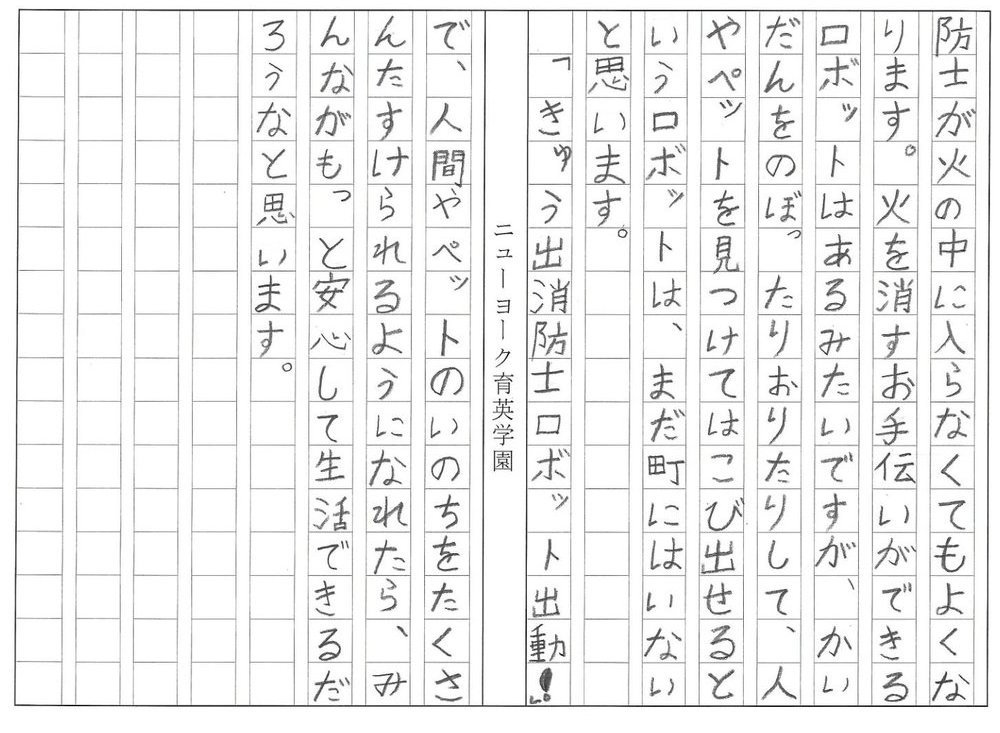 防士が火の中に入らなくてもよくな
ります。火を消すお手伝いができる
ロボットはあるみたいですが、かい
だんをのぼったりおりたりして、人
やペットを見つけてはこび出せると
いうロボットは、まだ町にはいない
と思います。
「きゅう出消防士ロボット出動!」
ニューヨーク育英学園
で、人間やペットのいのちをたくさ
んたすけられるようになれたら、み
んながもっと安心して生活できるだ
ろうなと思います。